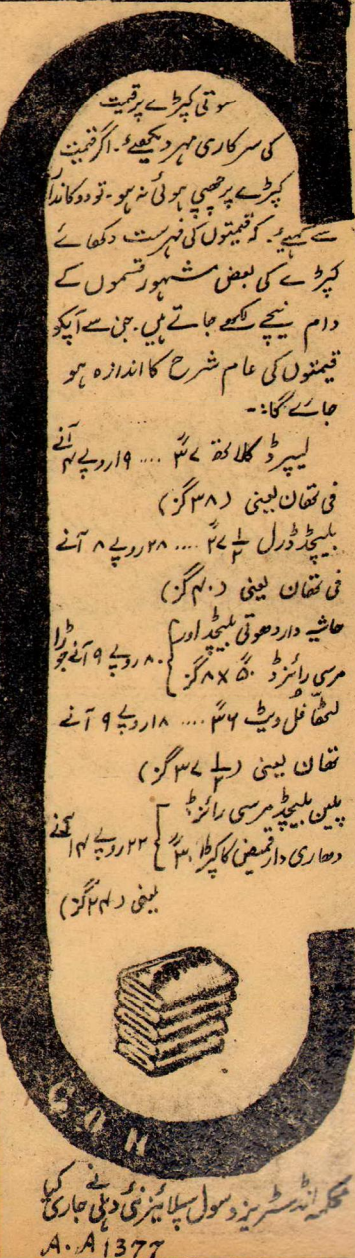 سوتی کپڑے پر قیمت
کی سرکاری مہر دیکھیئے۔ اگر قیمت
کپڑے پر چھپی ہوئی نہ ہو۔ تو دوکاندار
سے کہیئے۔ کہ قیمتوں کی فہرست دکھائے
کپڑے کی بعض مشہور قسموں کے
دام نیچے لکھے جاتے ہیں۔ جن سے آپکو
قیمتوں کی عام شرح کا اندازہ ہو
جائے گا:-
لیپرڈ کلاتھ ۳۷" .... ۱۹روپے ۴ آنے
فی تھان یعنی (۳۸گز)
بلیچڈ ڈرل ۲۷½" .... ۲۸روپے ۸ آنے
فی تھان یعنی (۴۰گز)
حاشیہ دار دھوتی بلیچڈ اور
مرسی رائزڈ ۵۰" x ۸گز } ۸۰ روپے ۹ آنے جوڑا
لٹھا فل ویٹ ۳۶" .... ۱۸روپے ۹ آنے
تھان یعنی (۳۷½ گز)
پلین بلیچڈ مرسی رائزڈ
دھاری دار قمیض کا کپڑا ۳۰" } ۲۲روپے ۱۴ آنے
یعنی (۲۴گز)
محکمہ انڈسٹریز و سول سپلائیز نئی دہلی نے جاری کیا
A.A 1377